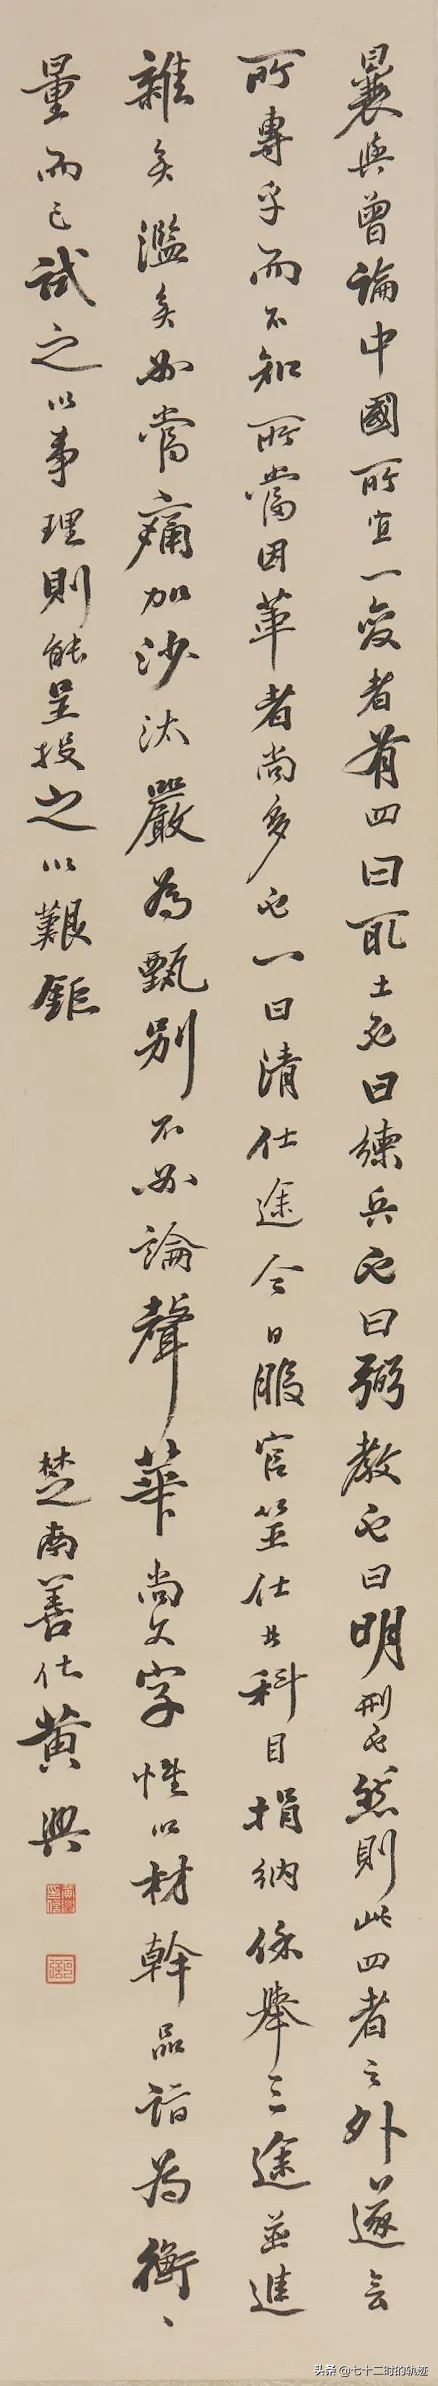 曩與曾論中國所宜一變者有四曰取士也曰練兵也曰弼教也曰明刑也然則此四者之外遂無
所專乎而不知所當因革者尚多也一曰清仕途今日服官筮仕共科目捐納保舉三途並進
雜矣濫矣必當痛加沙汰嚴為甄別不必論聲華尚文字惟以材幹品詣為衡、
量而已試之以事理則能呈投之以艱鉅
楚南善化黃興
头条 @七十二时的轨迹